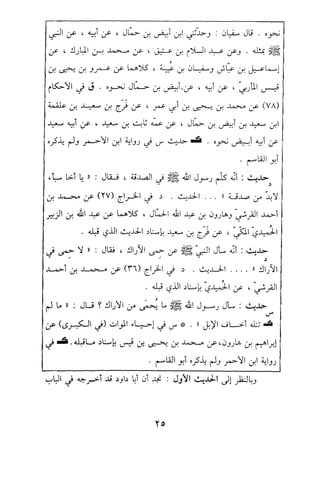 نحوه . قال سفيان : وحدّثني ابن أبيض بن حمّال ، عن أبيه ، عن النبي
ﷺ بمثله . وعن عبد السلام بن عتيق ، عن محمد بن المبارك ، عن
إسماعيل بن عيّاش وسفيان بن عُيينة ، كلاهما عن عمرو بن يحيى بن
قيس المأربيّ ، عن أبيه ، عن أبيض بن حمّال نحوه . ق في الأحكام
(٧٨) عن محمد بن يحيى بن أبي عمر ، عن فَرَج بن سعيد بن علقمة
ابن سعيد بن أبيض بن حمّال ، عن عمّه ثابت بن سعيد ، عن أبيه سعيد
عن أبيه أبيض نحوه . حديث س في رواية ابن الأحمر ولم يذكره
أبو القاسم .
حديث : أنّه كلّم رسول الله ﷺ في الصدقة ، فقال : « يا أخا سبأ،
د
لابدّ من صدقة » ... الحديث . د في الخراج (٢٧) عن محمد بن
أحمد القرشيّ وهارون بن عبد الله الحمّال ، كلاهما عن عبد الله بن الزبير
الحُميديّ المكّي ، عن فَرَج بن سعيد بإسناد الحديث الذي قبله .
حديث : أنّه سأل النبيّ ﷺ عن حِمى الأراك ، فقال : « لا حِمى في
د
الأراك » .... الحديث . د في الخراج (٣٦) عن محمد بن أحمد
القرشي ، عن الحُميديّ بإسناد الذي قبله .
حديث : سأل رسول الله ﷺ ما يُحمَى من الأراك ؟ قال : « ما لم
س
تنله أخفاف الإبل » . * س في إحياء الموات (في الكبرى) عن
إبراهيم بن هارون، عن محمد بن يحيى بن قيس بإسناد ماقبله. في
رواية ابن الأحمر ولم يذكره أبو القاسم .
وبالنظر إلى الحديث الأول : نجد أن أبا داود قد أخرجه في الباب
٢٥